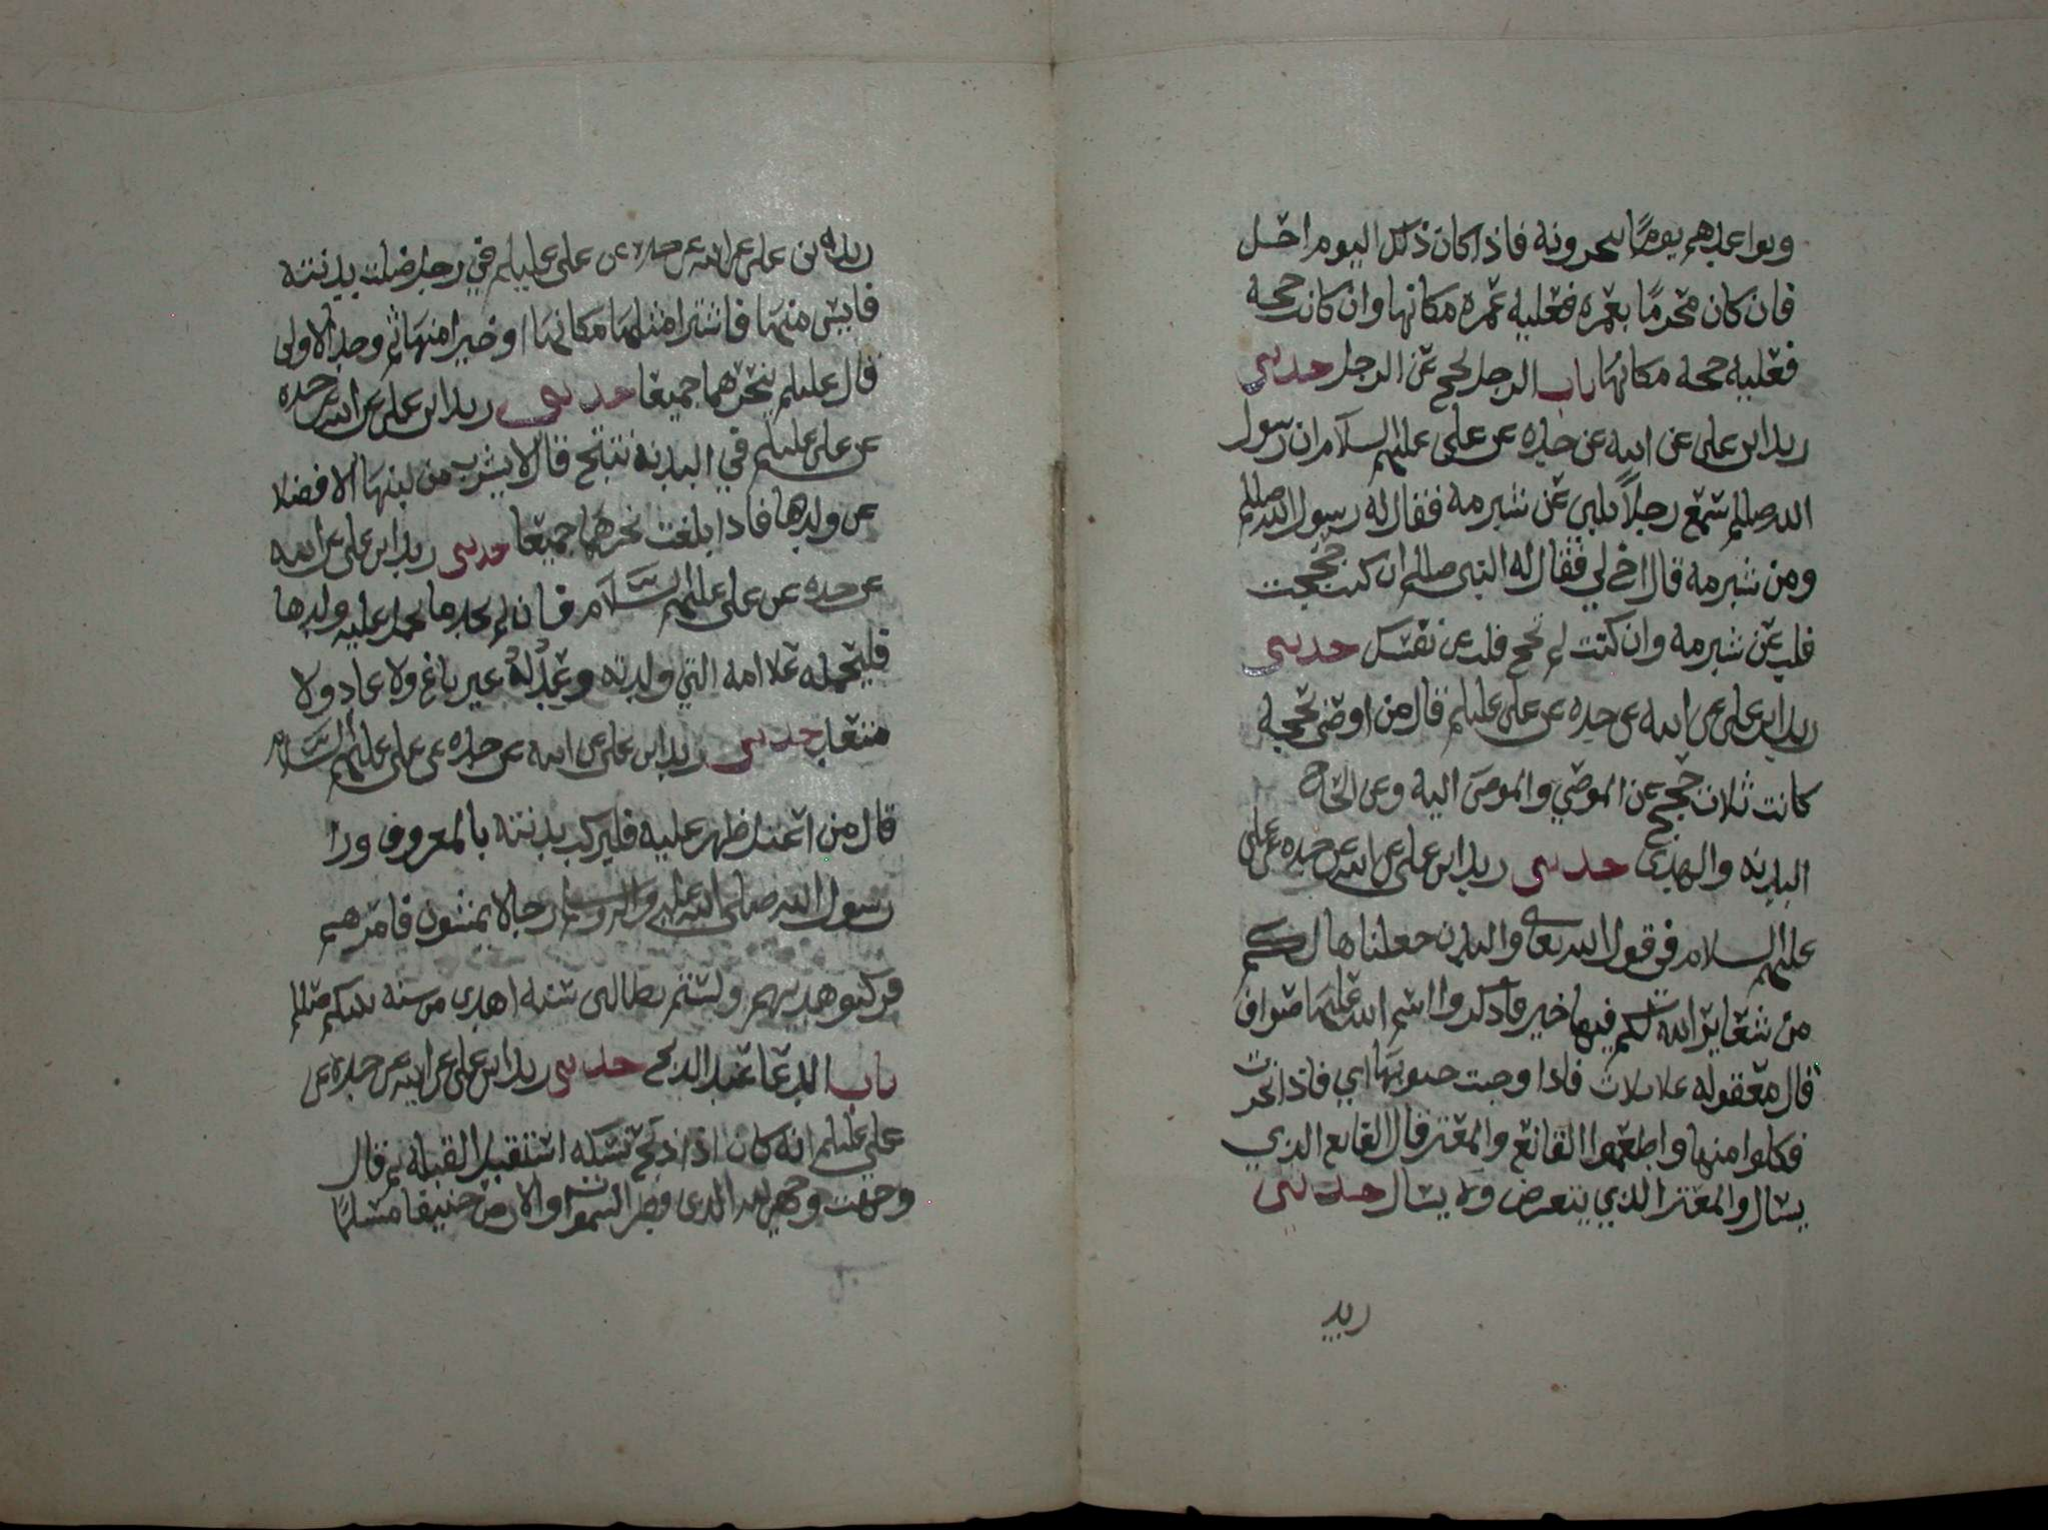 ويواعدهم يوما ينحرونه فاذا كان ذلك اليوم احل
فان كان محرما بعمره فعليه عمره مكانها وان كانت حجه
فعليه حجه مكانها باب الرجل يحج عن الرجل حدثني
زيد ابن علي عن ابيه عن جده عن علي عليهم السلام ان رسول
الله صللم سمع رجلاً يلبي عن شبرمه فقال له رسول الله صللم
ومن شبرمه قال اخ لي فقال له النبي صللم ان كنت حججت
فلب عن شبرمه وان كنت لم تحج فلب عن نفسك حدثني
زيد ابن علي عن ابيه عن جده عن علي عليلم قال من اوصى بحجه
كانت ثلاث حجج عن الموصي والموصى اليه وعن الحاج
البدنه والهدي حدثني زيد ابن علي عن ابيه عن جده عن علي
عليهم السلام في قول الله تعالى والبدن جعلناها لكم
من شعاير الله لكم فيها خير فاذكروا اسم الله عليها صواف
قال معقوله على ثلاث فاذا وجبت جنوبها اي فاذا نحرت
فكلوا منها واطعموا القانع والمعتر قال القانع الذي
يسال والمعتر الذي يتعرض ولا يسال حدثني
زيد
زيد بن علي عن ابيه عن جده عن علي عليلم في رجل ضلت بدنته
فايس منها فاشترا مثلها مكانها او خيرا منها ثم وجد الاولى
قال عليلم ينحرهما جميعا حدثني زيد ابن علي عن ابيه عن جده
عن علي عليلم في البدنه تنتج قال لا يشرب من لبنها الا فضلا
عن ولدها فاذا بلغت نحرهما جميعا حدثني زيد ابن علي عن ابيه
عن جده عن علي عليهم السلام فان لم يجد ما يحمل عليه ولدها
فليحمله علا امه التي ولدته وعدله غير باغ ولا عاد ولا
متعد حدثني زيد ابن علي عن ابيه عن جده عن علي عليهم السلام
قال من اعتل ظهر عليه فليركب بدنته بالمعروف ورا
رسول الله صلى الله عليه واله وسلم رجالا يمشون فامرهم
فركبو هديهم ولستم بطالبي سنه اهدى من سنه نبيكم صللم
باب الدعا عند الذبح حدثني زيد ابن علي عن ابيه عن جده عن
علي عليلم انه كان اذا ذبح نسكه استقبل القبله ثم قال
وجهت وجهي لله الذي فطر السموات والارض حنيفا مسلما